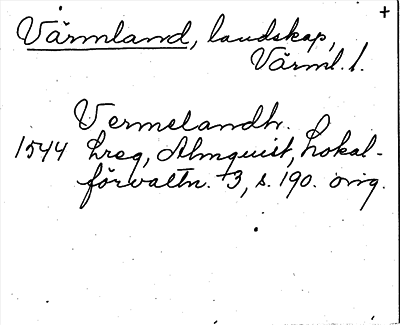 +
Värmland, landskap,
Värml. l.
Vermelandh.
1544 Lreg, Almquist, Lokal-
förvaltn. 3, s. 190. orig.